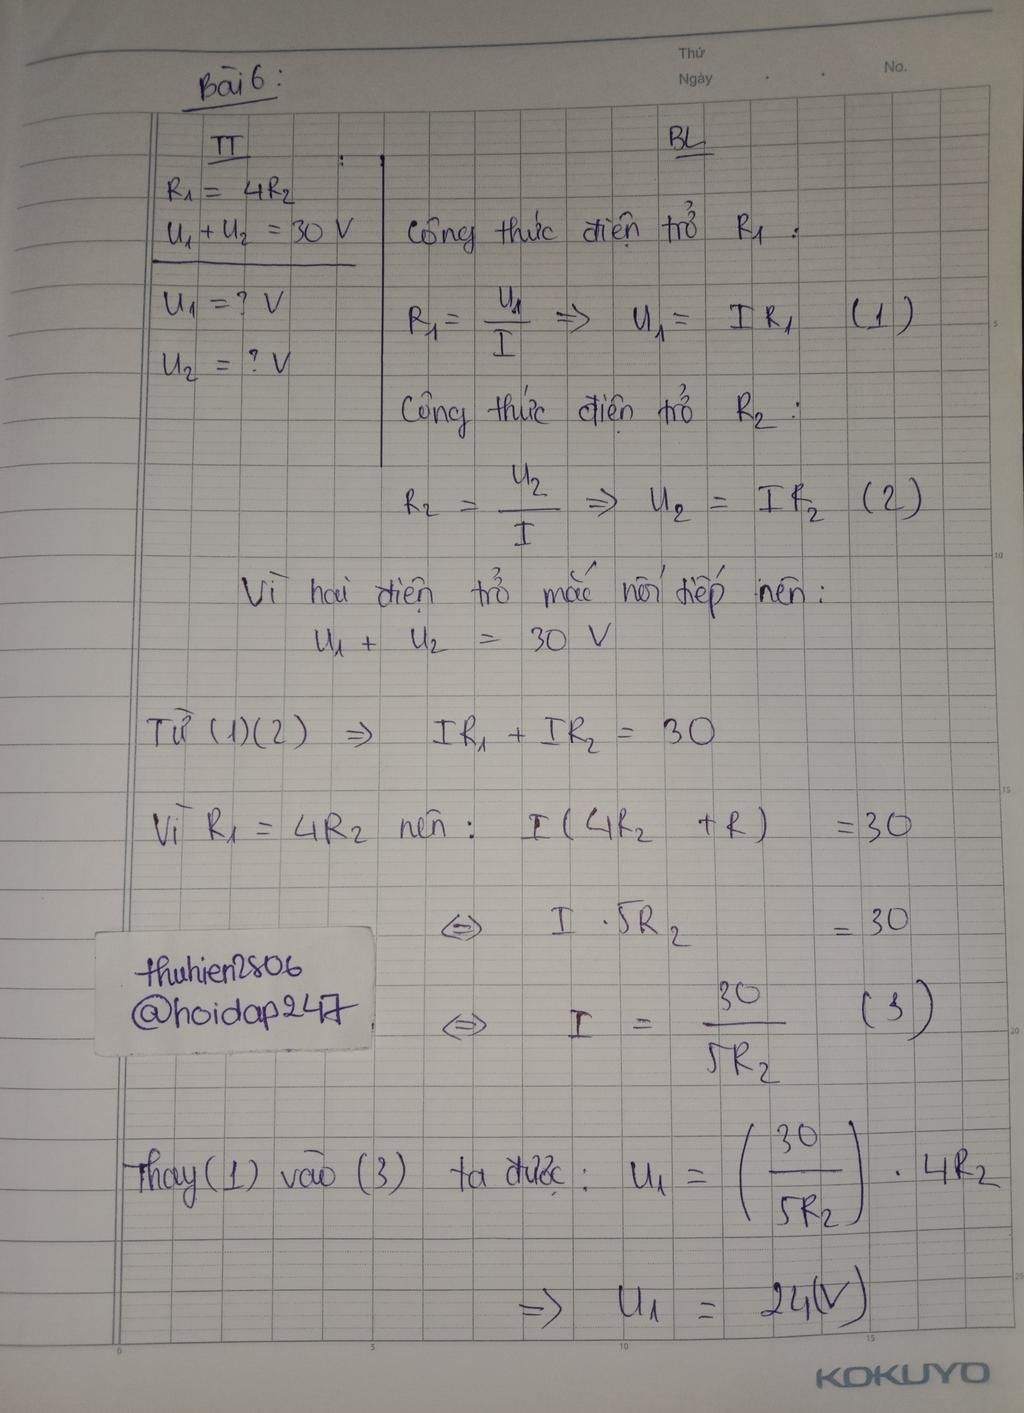 Thứ
Ngày . . No.
Bài 6:
TT
R₁ = 4R₂
U₁ + U₂ = 30 V
U₁ = ? V
U₂ = ? V
BL
Công thức điện trở R₁ :
R₁ = U₁/I => U₁ = I R₁ (1)
Công thức điện trở R₂ :
R₂ = U₂/I => U₂ = I R₂ (2)
Vì hai điện trở mắc nối tiếp nên :
U₁ + U₂ = 30 V
Từ (1)(2) => IR₁ + IR₂ = 30
Vì R₁ = 4R₂ nên : I(4R₂ + R) = 30
<=> I . 5R₂ = 30
<=> I = 30/5R₂ (3)
thuhien2806
@hoidap247
Thay (1) vào (3) ta được : U₁ = (30/5R₂) . 4R₂
=> U₁ = 24(V)
5
10
15
20
25
0 5 10 15
KOKUYO